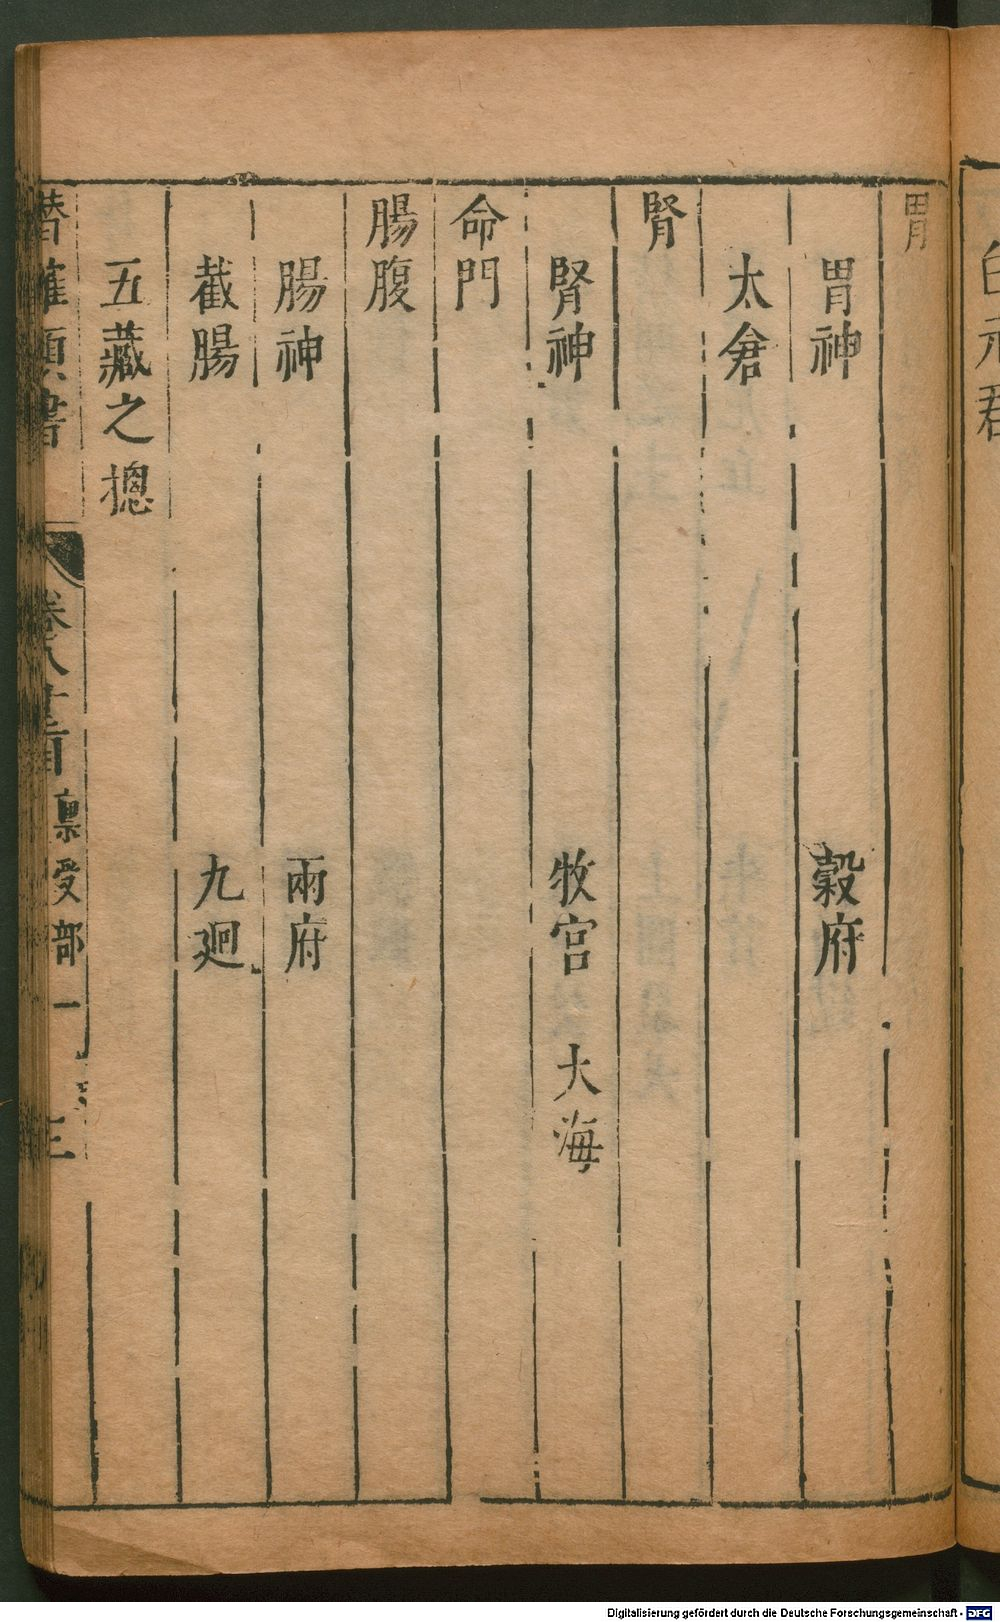 胃
胃神 穀府
太倉
腎
腎神 牧宮 大海
命門
腸腹
腸神 兩府
截腸 九廻
五藏之摠
潛確類書 卷八十 稟受部一 三
Digitalisierung gefördert durch die Deutsche Forschungsgemeinschaft - DFG